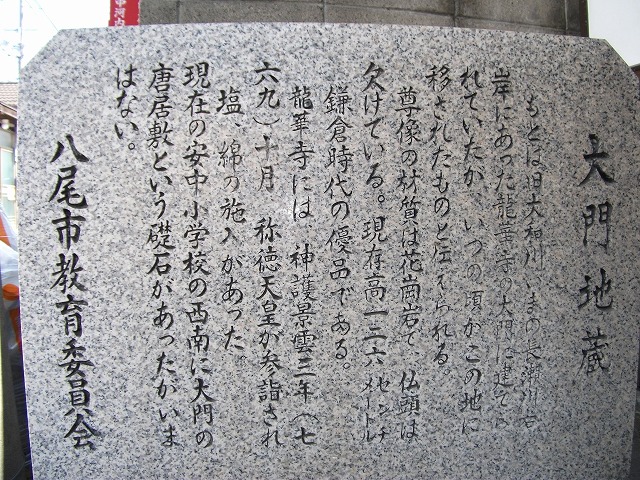 大門地蔵
もとは旧大和川いまの長瀬川右
岸にあった龍華寺の大門に建てら
れていたが、いつの頃かこの地に
移されたものと伝えられる
尊像の材質は花崗岩で、仏頭は
欠けている。現存高一二六センチメートル
鎌倉時代の優品である。
龍華寺には、神護景雲三年(七
六九)十月 称徳天皇が参詣され
塩、綿の施入があった
現在の安中小学校の西南に大門の
唐居敷という礎石があったがいま
はない。
八尾市教育委員会